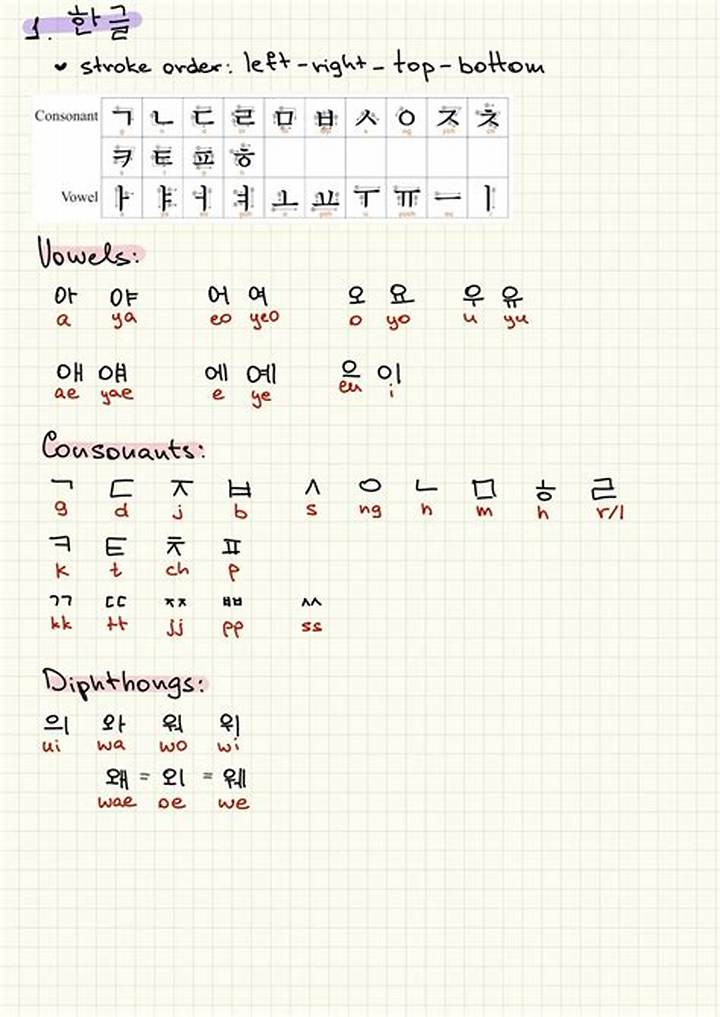 1. 한글
stroke order: left-right-top-bottom
Consonant ㄱ ㄴ ㄷ ㄹ ㅁ ㅂ ㅅ ㅇ ㅈ ㅊ
ㅋ ㅌ ㅍ ㅎ
Vowel ㅏ ㅑ ㅓ ㅕ ㅗ ㅛ ㅜ ㅠ ㅡ ㅣ
Vowels:
아 야 어 여 오 요 우 유
a ya eo yeo o yo u yu
애 얘 에 예 으 이
ae yae e ye eu i
Consonants:
ㄱ ㄷ ㅈ ㅂ ㅅ ㅇ ㄴ ㅁ ㅎ ㄹ
g d j b s ng n m h r/l
ㅋ ㅌ ㅊ ㅍ
k t ch p
ㄲ ㄸ ㅉ ㅃ ㅆ
kk tt jj pp ss
Diphthongs:
의 와 워 위
ui wa wo wi
왜 = 외 = 웨
wae oe we